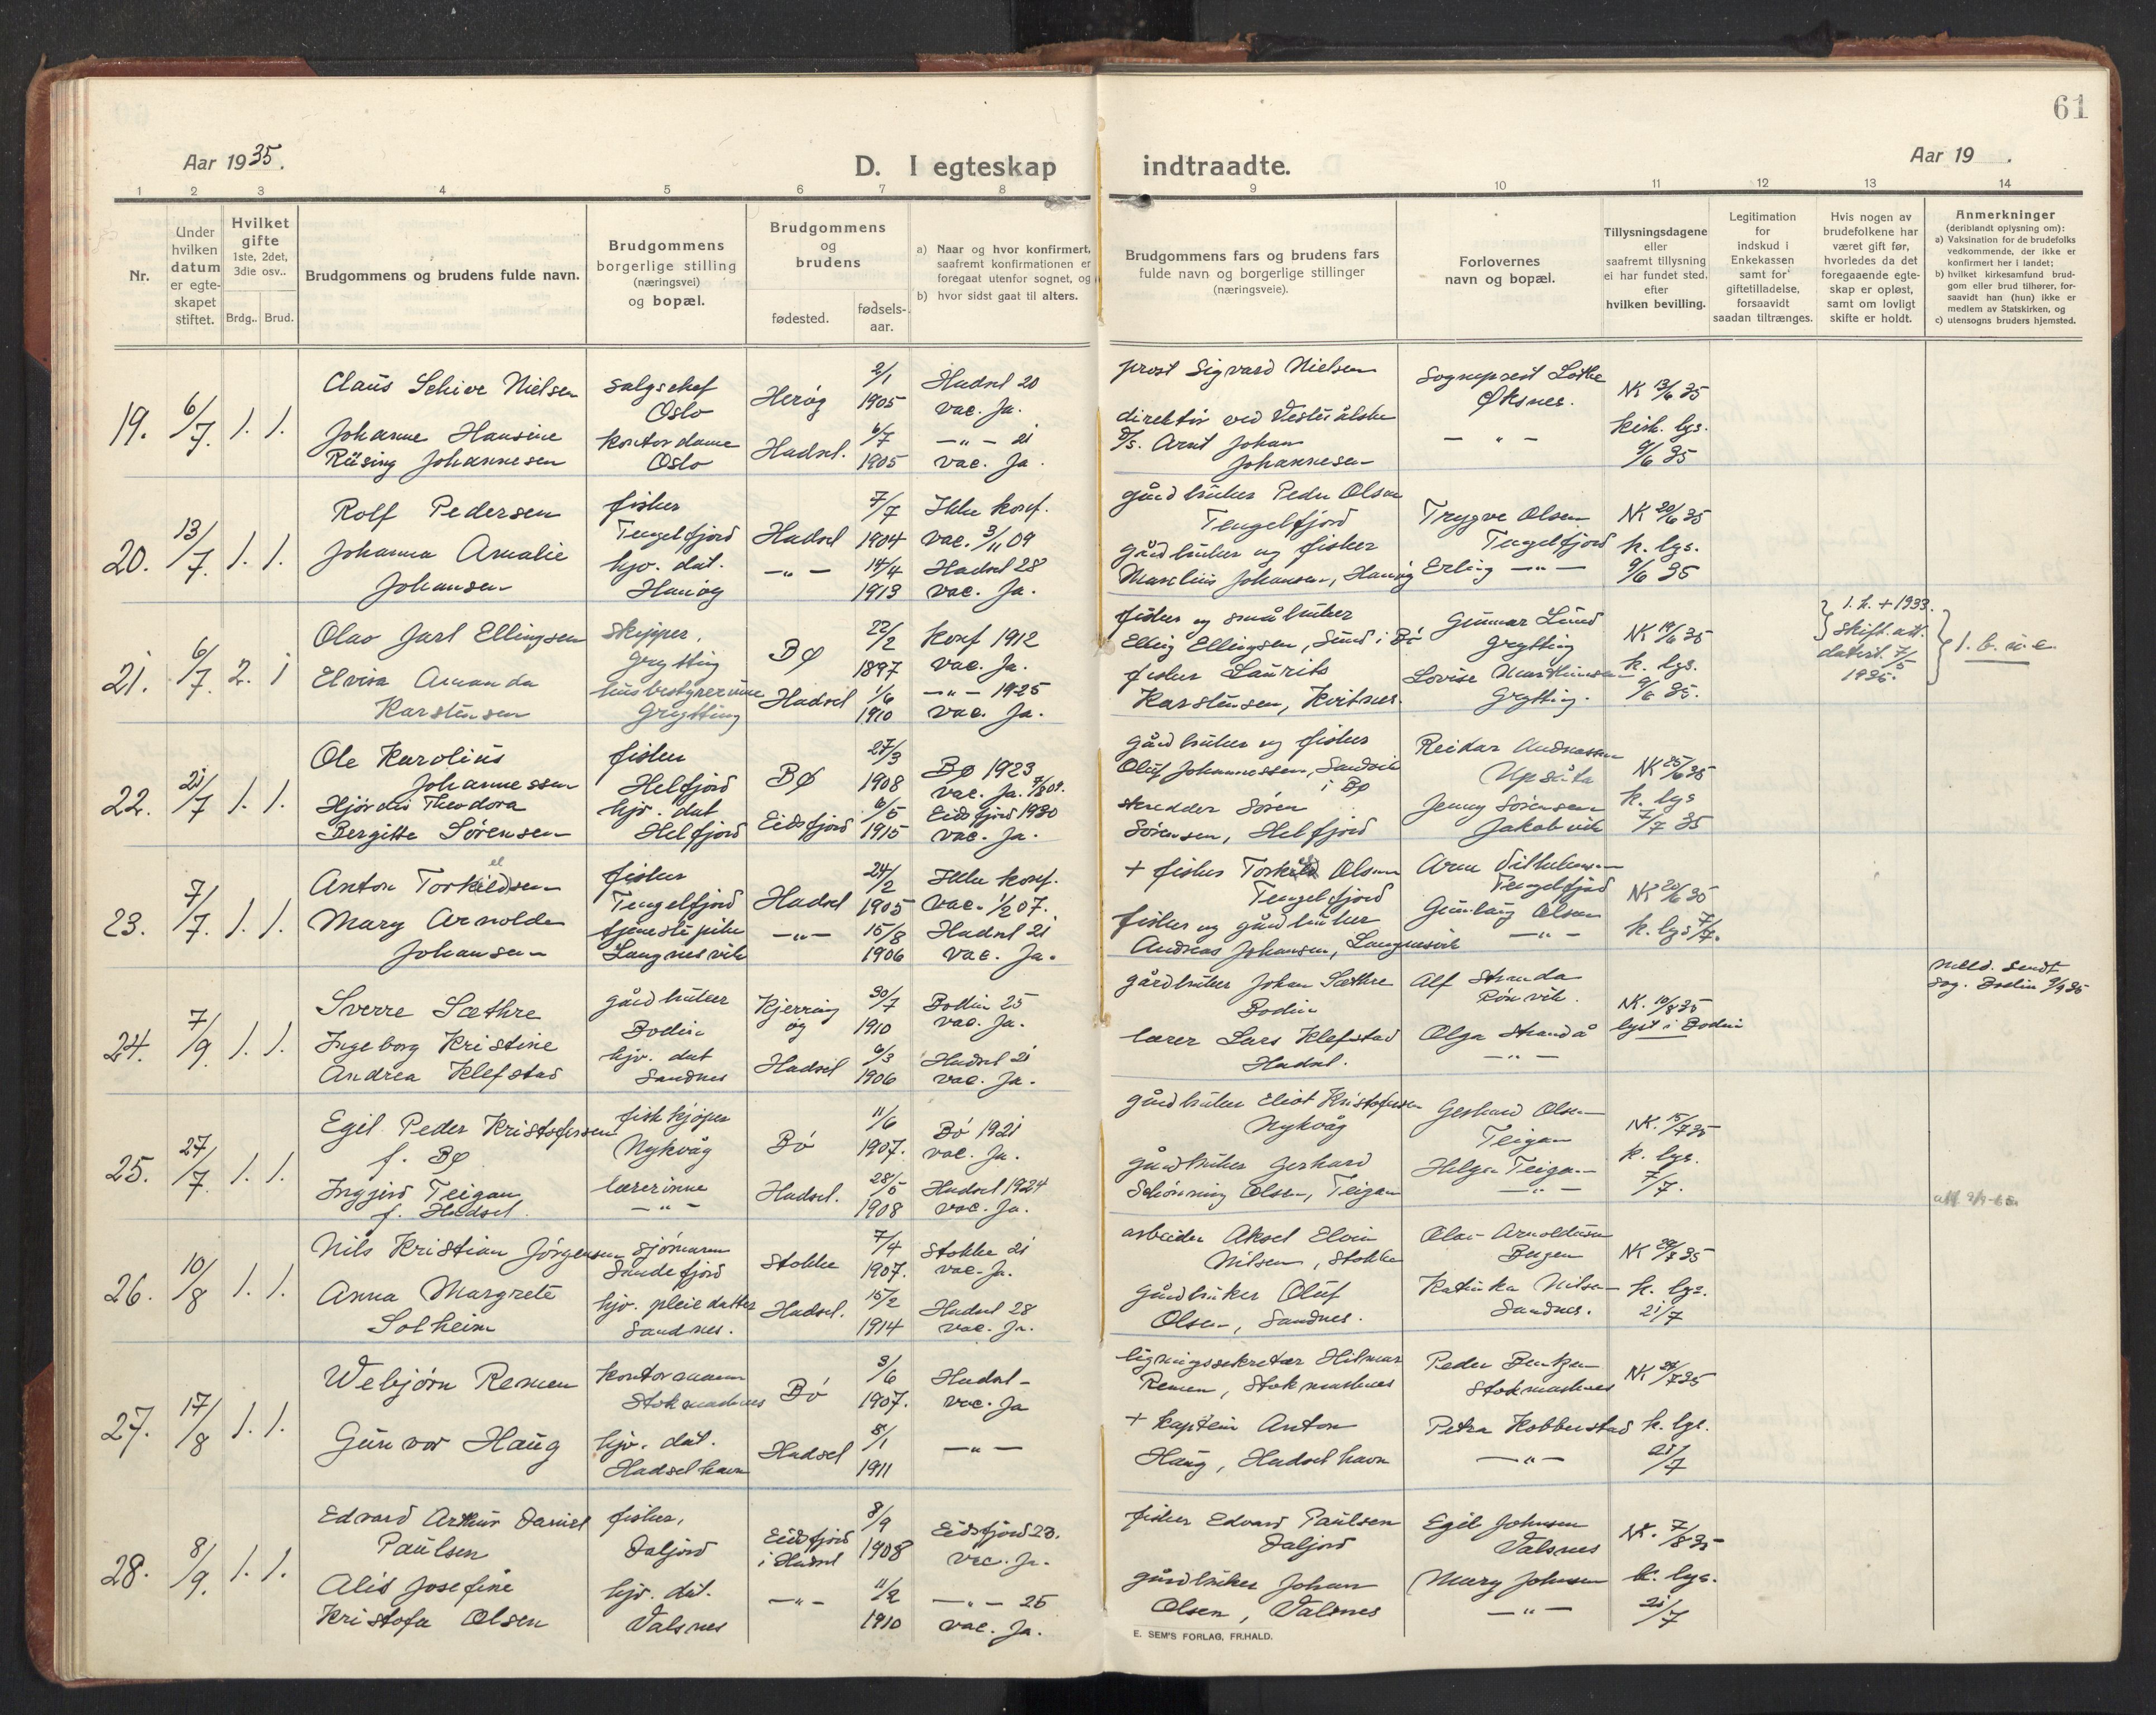 61
Aar 1935.
D. I egteskap indtraadte.
Aar 19 .
1 2 3 4 5 6 7 8 9 10 11 12 13 14
Nr.
Under hvilken datum er egteskapet stiftet.
Hvilket gifte 1ste, 2det, 3die osv..
Brdg.. Brud.
Brudgommens og brudens fulde navn.
Brudgommens borgerlige stilling (næringsvei) og bopæl.
Brudgommens og brudens
fødested.
fødsels-aar.
a) Naar og hvor konfirmert, saafremt konfirmationen er foregaat utenfor sognet, og
b) hvor sidst gaat til alters.
Brudgommens fars og brudens fars fulde navn og borgerlige stillinger (næringsveie).
Forlovernes navn og bopæl.
Tillysningsdagene eller saafremt tillysning ei har fundet sted, efter hvilken bevilling.
Legitimation for indskud i Enkekassen samt for giftetilladelse, forsaavidt saadan tiltrænges.
Hvis nogen av brudefolkene har været gift før, hvorledes da det foregaaende egteskap er opløst, samt om lovligt skifte er holdt.
Anmerkninger (deriblandt oplysning om):
a) Vaksination for de brudefolks vedkommende, der ikke er konfirmert her i landet;
b) hvilket kirkesamfund brudgom eller brud tilhører, forsaavidt han (hun) ikke er medlem av Statskirken, og
c) utensogns bruders hjemsted.
19. 6/7. 1. 1.
Claus Schive Nielsen
Johanne Hansine
Rüsing Johannesen
salgschef
Oslo
kontordame
Oslo
Herøy
Hadsel.
2/1 1905
6/7 1905
Hadsel 20
vac. Ja.
—"— 21
vac. Ja.
prost Sigvard Nielsen
direktør ved Vesteraalske
D/s. Arnt Johan
Johannesen
Sogneprest Lothe
Øksnes.
— " —
NK 13/6 35
kirk. lys.
9/6 35
20. 13/7. 1. 1.
Rolf Pedersen
Johanna Amalie
Johansen
fisker
Tengelfjord
hjv. dat.
Hanøy
Hadsel
—"—
7/7 1904
14/4 1913
Ikke konf.
vac. 3/11 09
Hadsel 28
vac. Ja.
gårdbruker Peder Olsen
Tengelfjord
gårdbruker og fisker
Marelius Johansen, Hanøy
Trygve Olsen
Tengelfjord
Erling —"—
NK 20/6 35
k. lys.
9/6 35
21. 6/7. 2. 1
Olav Jarl Ellingsen
Elvira Amanda
Karstensen
skipper,
Grytting
husbestyrerinne
Grytting
BØ
Hadsel
22/2 1897
1/6 1910
konf 1912
vac. Ja.
—"— 1925
vac. Ja.
fisker og småbruker
Elling Ellingsen, Sund i Bø
fisker Laurits
Karstensen, Kvitnes.
Gunnar Lund
Grytting
Lovise
Grytting.
NK 19/6 35
k. lys.
9/6 35.
1. h. + 1933.
skift.att.
datert. 7/5
1935.
1. b. u. e.
22. 21/7 1. 1.
Ole Karolius
Johannessen
Hjørdis Theodora
Bergitte Sørensen
fisker
Helfjord
hjv. dat
Helfjord
BØ
Eidsfjord
27/3 1908
6/5 1915
Bø 1923
vac. Ja. 7/8 09.
Eidsfjord 1930
vac. Ja.
gårdbruker og fisker
Oluf Johannessen, Sandvik
i Bø
skredder Søren
Sørensen, Helfjord
Reidar Andreassen
Upsåta
Jenny Sørensen
Jakobvik
NK 25/6 35
k. lys
7/7 35
23. 7/7. 1. 1.
Anton Torkildsen
Mary Arnolda
Johansen
fisker
Tengelfjord
tjenestepike
Langnesvik
Hadsel
—"—
24/2 1905
15/8 1906
Ikke konf.
vac. 1/2 07.
Hadsel 21
vac. Ja.
+ fisker Torkild Olsen
Tengelfjord
fisker og gårdbruker
Andreas Johansen, Langnesvik
Arne Vilhelmsen
Tengelfjord
Gunlaug Olsen
—"—
NK 20/6 35
k. lys 7/7.
24. 7/9 1. 1.
Sverre Sæthre
Ingeborg Kristine
Andrea Klefstad
gårdbruker
Bodin
hjv. dat
Sandnes
Kjerringøy
Hadsel
30/7 1910
6/3 1906
Bodin 25
vac. Ja.
Hadsel 21
vac. Ja.
gårdbruker Johan Sæthre
Bodin
lærer Lars Klefstad
Hadsel.
Alf Stranda
Rønvik.
Olga Strandå
—"—
NK. 10/8 35
lyst i Bodin
meld. sendt
sog. Bodin 9/9 35
25. 27/7 1. 1.
Egil Peder Kristofersen
f. BØ
Ingjerd Teigan
f. Hadsel.
fiskekjøper
Nykvåg
lærerinne
—"—
Bø
Hadsel.
11/6 1907.
28/5 1908
Bø 1921
vac. Ja.
Hadsel 1924
vac. Ja.
gårdbruker Eliot Kristofersen
Nykvåg
gårdbruker Gerhard
Schønning Olsen, Teigan
Gerhard Olsen
Teigan
Helga Teigan
—"—
NK. 15/7 35
k. lys.
7/7.
26. 10/8 1. 1.
Nils Kristian Jörgensen
Anna Margrete
Solheim
sjømann
Sandefjord
hjv. pleiedatter
Sandnes.
Stokke
Hadsel.
7/4 1907.
15/2 1914
Stokke 21
vac. Ja.
Hadsel 28
vac. Ja.
arbeider Aksel Elvin
Nilsen, Stokke
gårdbruker Oluf
Olsen, Sandnes.
Olav Arnoldussen
Bergen
Katinka Nilsen
Sandnes.
NK 29/7 35
k. lys.
21/7
27. 17/8 1. 1.
Webjørn Remen
Gunvor Haug
kontormann
Stokmarknes
hjv. dat.
Hadselhavn
Bø
Hadsel
3/6 1907.
8/1 1911
Hadsel -
vac. Ja
—"—
ligningssekretær Hilmar
Remen, Stokmarknes
+ kaptein Anton
Haug, Hadselhavn
Peder Bentzen
Stokmarknes
Petra Kobberstad
—"—
NK 24/7 35
k. lys.
21/7
28. 8/9. 1. 1.
Edvard Arthur Daniel
Paulsen
Alis Josefine
Kristofa Olsen
fisker,
Daljord
hjv. dat.
Valsnes
Eidsfjord
i Hadsel
—"—
8/9 1908
11/2 1910
Eidsfjord 23.
vac. Ja.
—"— 25
vac. Ja.
fisker Edvard Paulsen
Daljord
gårdbruker Johan
Olsen, Valsnes
Egil Johnsen
Valsnes
Mary Johnsen
—"—
NK. 7/8 35
k. lys.
21/7
E. SEM'S FORLAG, FR.HALD.